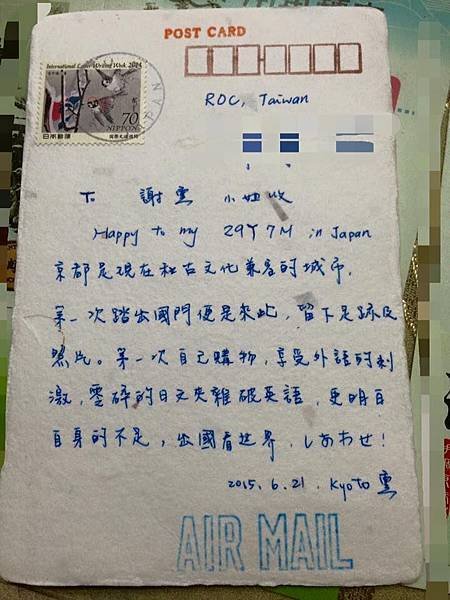 POST CARD
International Letter Writing Week 2014
70
NIPPON
日本郵便
ROC, Taiwan
To 謝雲 小姐收
Happy to my 29Y7M in Japan
京都是現在和古文化兼容的城市,
第一次踏出國門便是來此, 留下足跡及
照片。第一次自己購物, 享受外語的刺
激, 零碎的日文夾雜破英語, 更明白
自身的不足, 出國看世界, しあわせ!
2015.6.21. Kyoto 雲
AIR MAIL